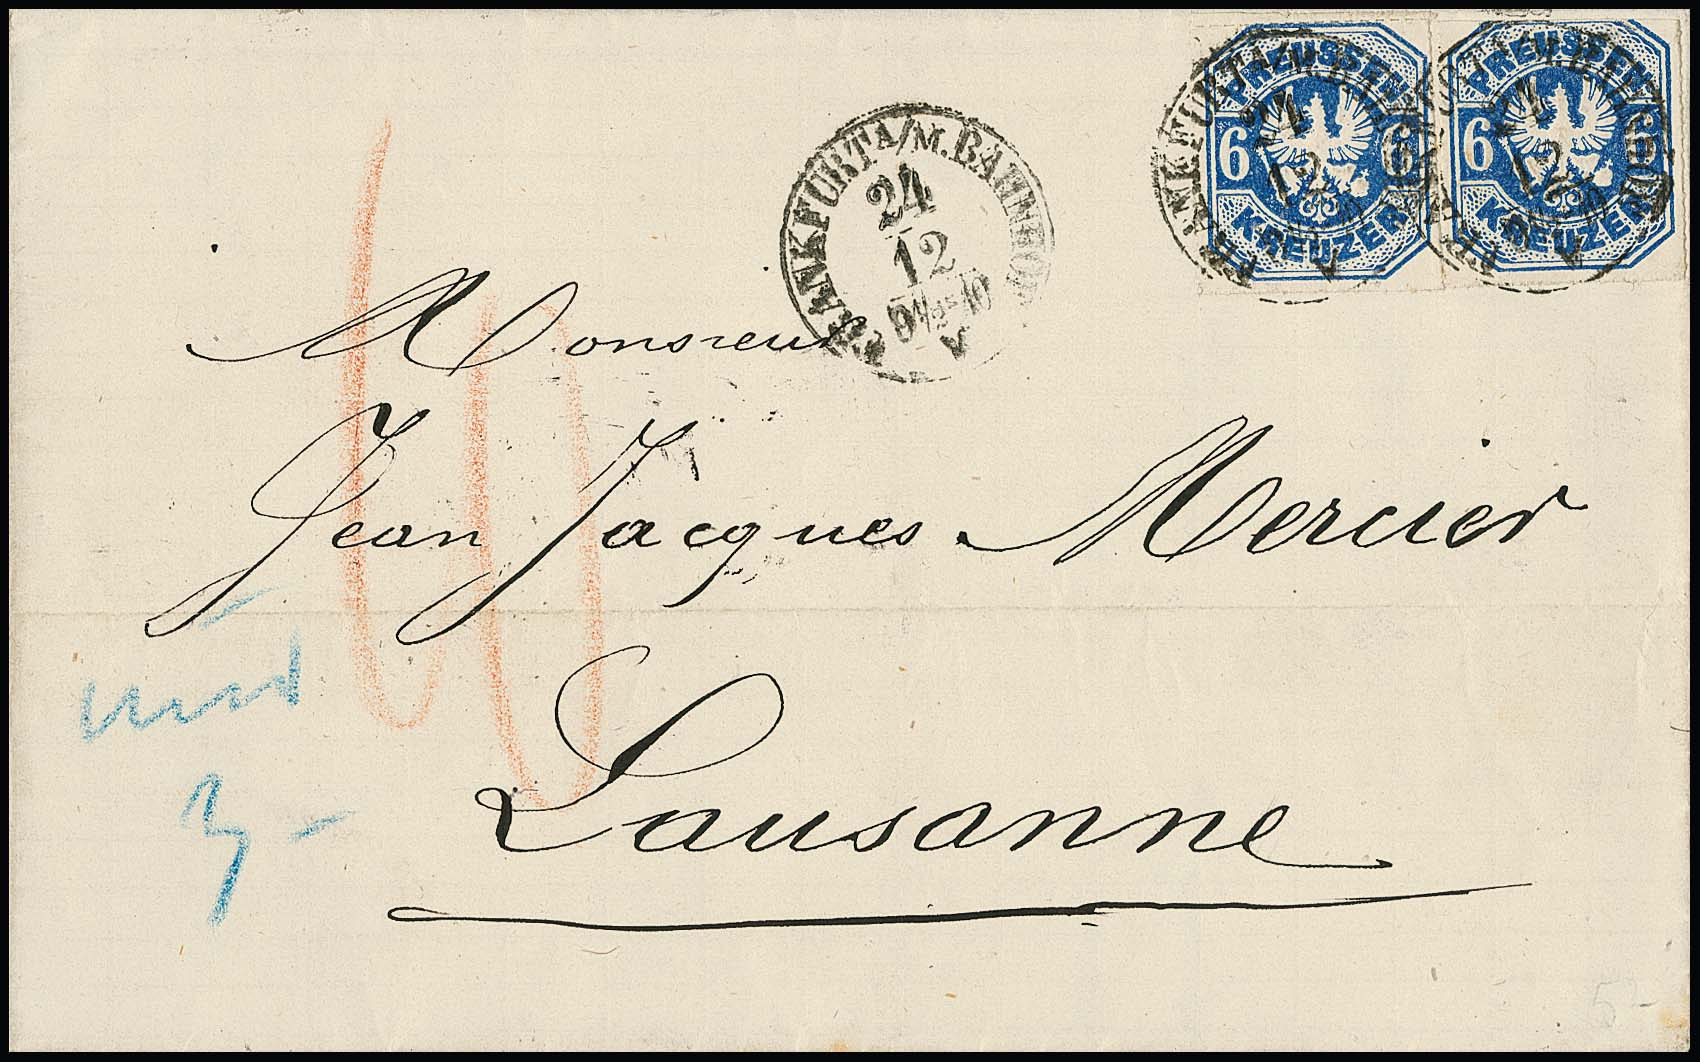 PREUSSEN
6 6
KREUZER
PREUSSEN
6 6
KREUZER
FRANKFURT A/M. BAHNHOF
24
12
9½-10
Monsieur
Jean Jacques Mercier
Lausanne